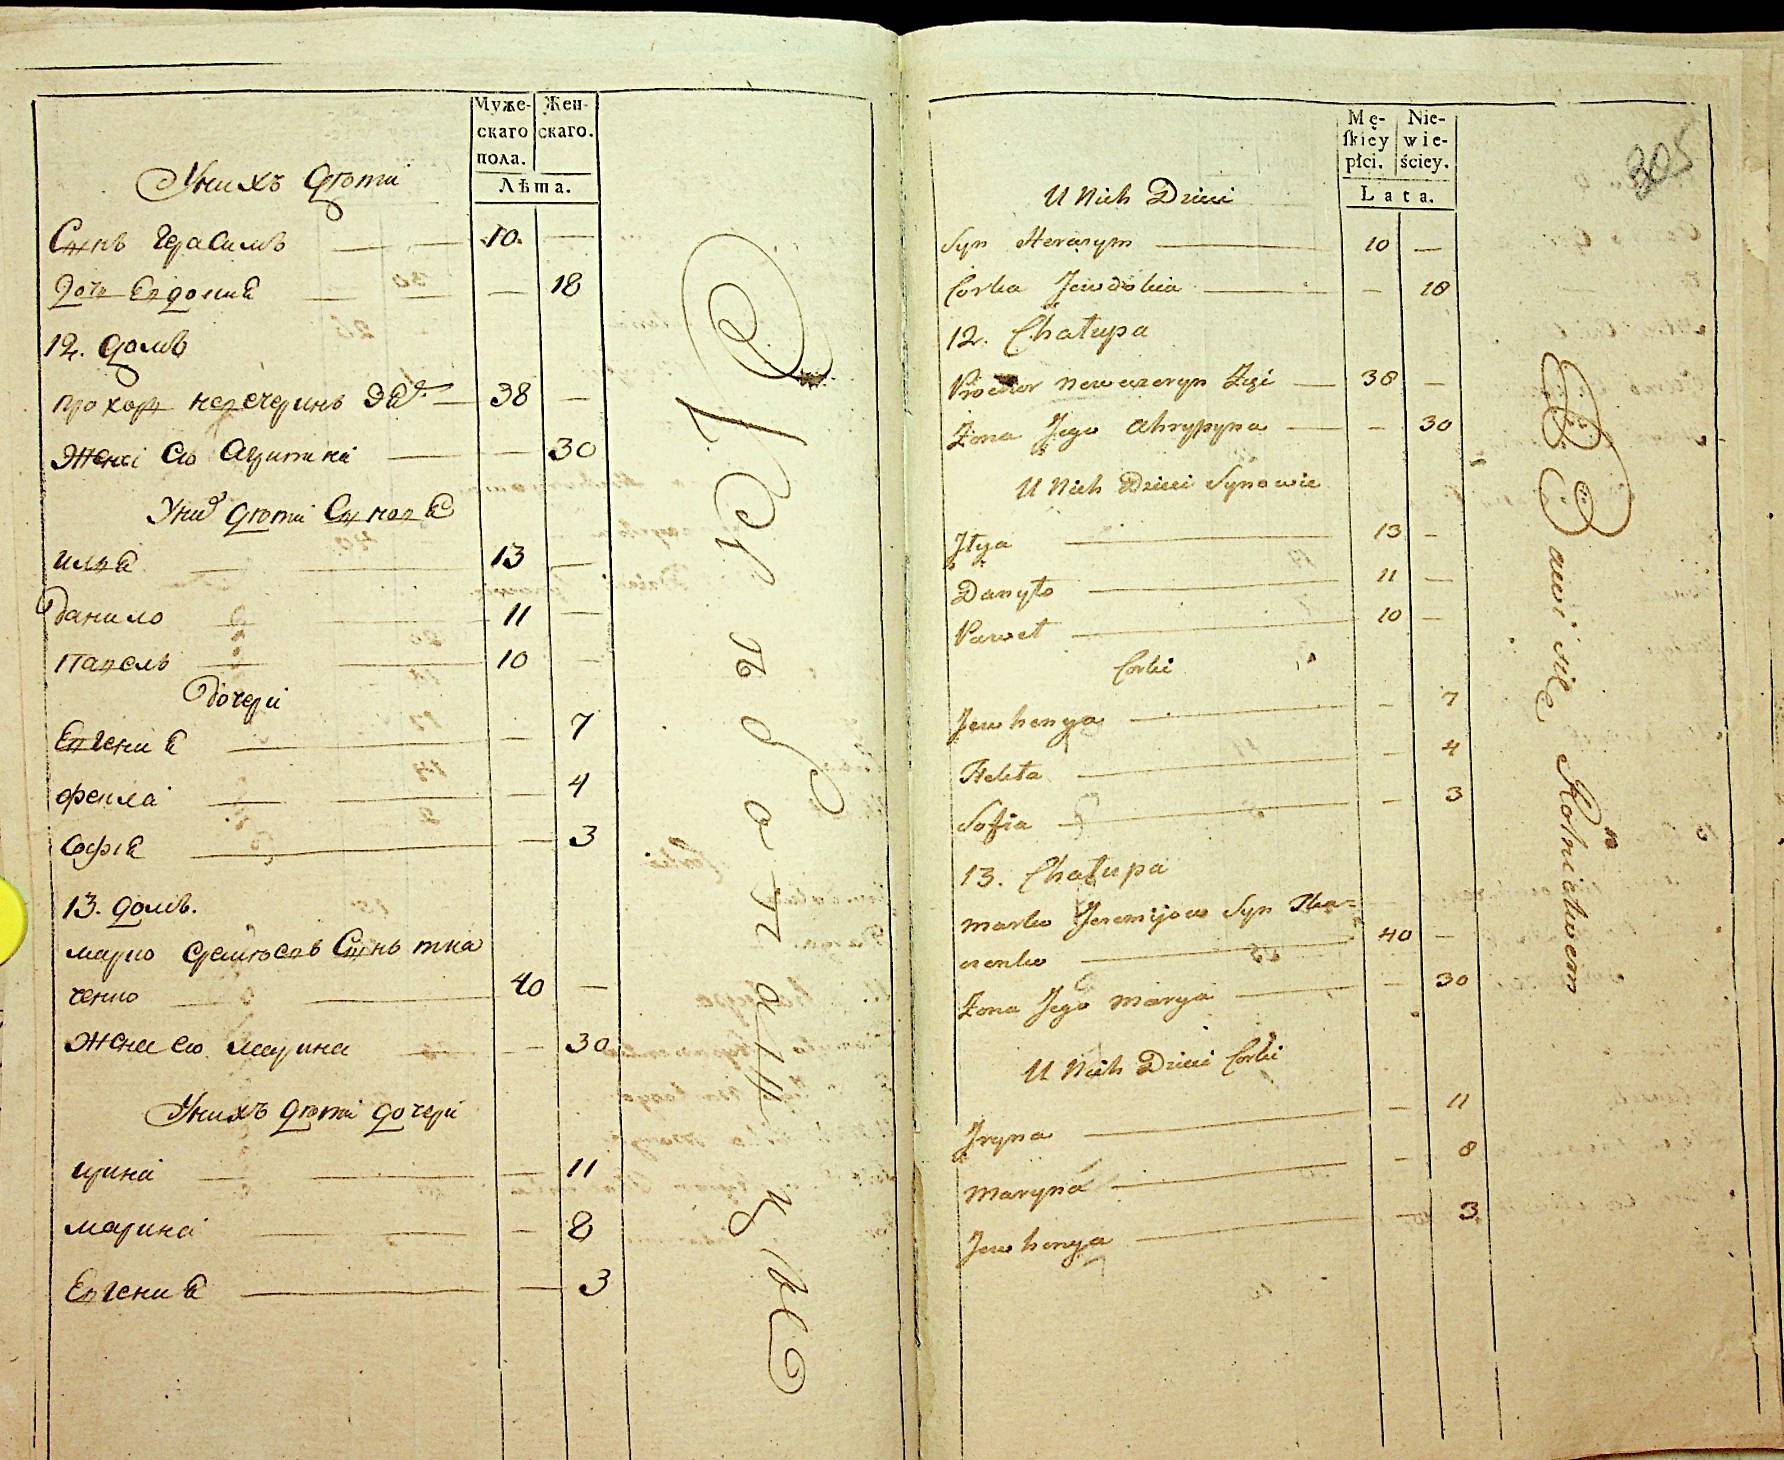 Муже-
скаго
пола.
Жен-
скаго.
Лѣта.
Унихъ дѣти
Сынъ Герасимъ — 10. —
Дочь Евдокия — — 18
12. домъ
Прохор Невечеринъ — 38 —
Жена его Агрипина — — 30
Уних дѣти Сыновя
илья — 13 —
Данило — 11 —
Павелъ — 10 —
Дочери
Евгения — — 7
Фекла — — 4
Софiя — — 3
13. домъ.
марко Еремѣевъ Сынъ тка
ченко — 40 —
Жена его марина — — 30
Унихъ дѣти дочери
ирина — — 11
марина — — 8
Евгения — — 3
305
Mę-
ſkiey
płci.
Nie-
wie-
ściey.
Lata.
U Nich Dzieci
Syn Herasym — 10 —
Corka Jewdokia — — 18
12. Chałupa
Prochor Neweczeryn — 38 —
Żona Jego Ahrypyna — — 30
U Nich Dzieci Synowie
Jłya — 13 —
Danyło — 11 —
Paweł — 10 —
Corki
Jewhenya — — 7
Tekla — — 4
Sofia — — 3
13. Chałupa
Marko Jeremijow Syn Tka=
czenko — 40 —
Żona Jego Marya — — 30
U Nich Dzieci Corki
Jryna — — 11
Maryna — — 8
Jewhenya — — 3
Bawi się Rolnictwem